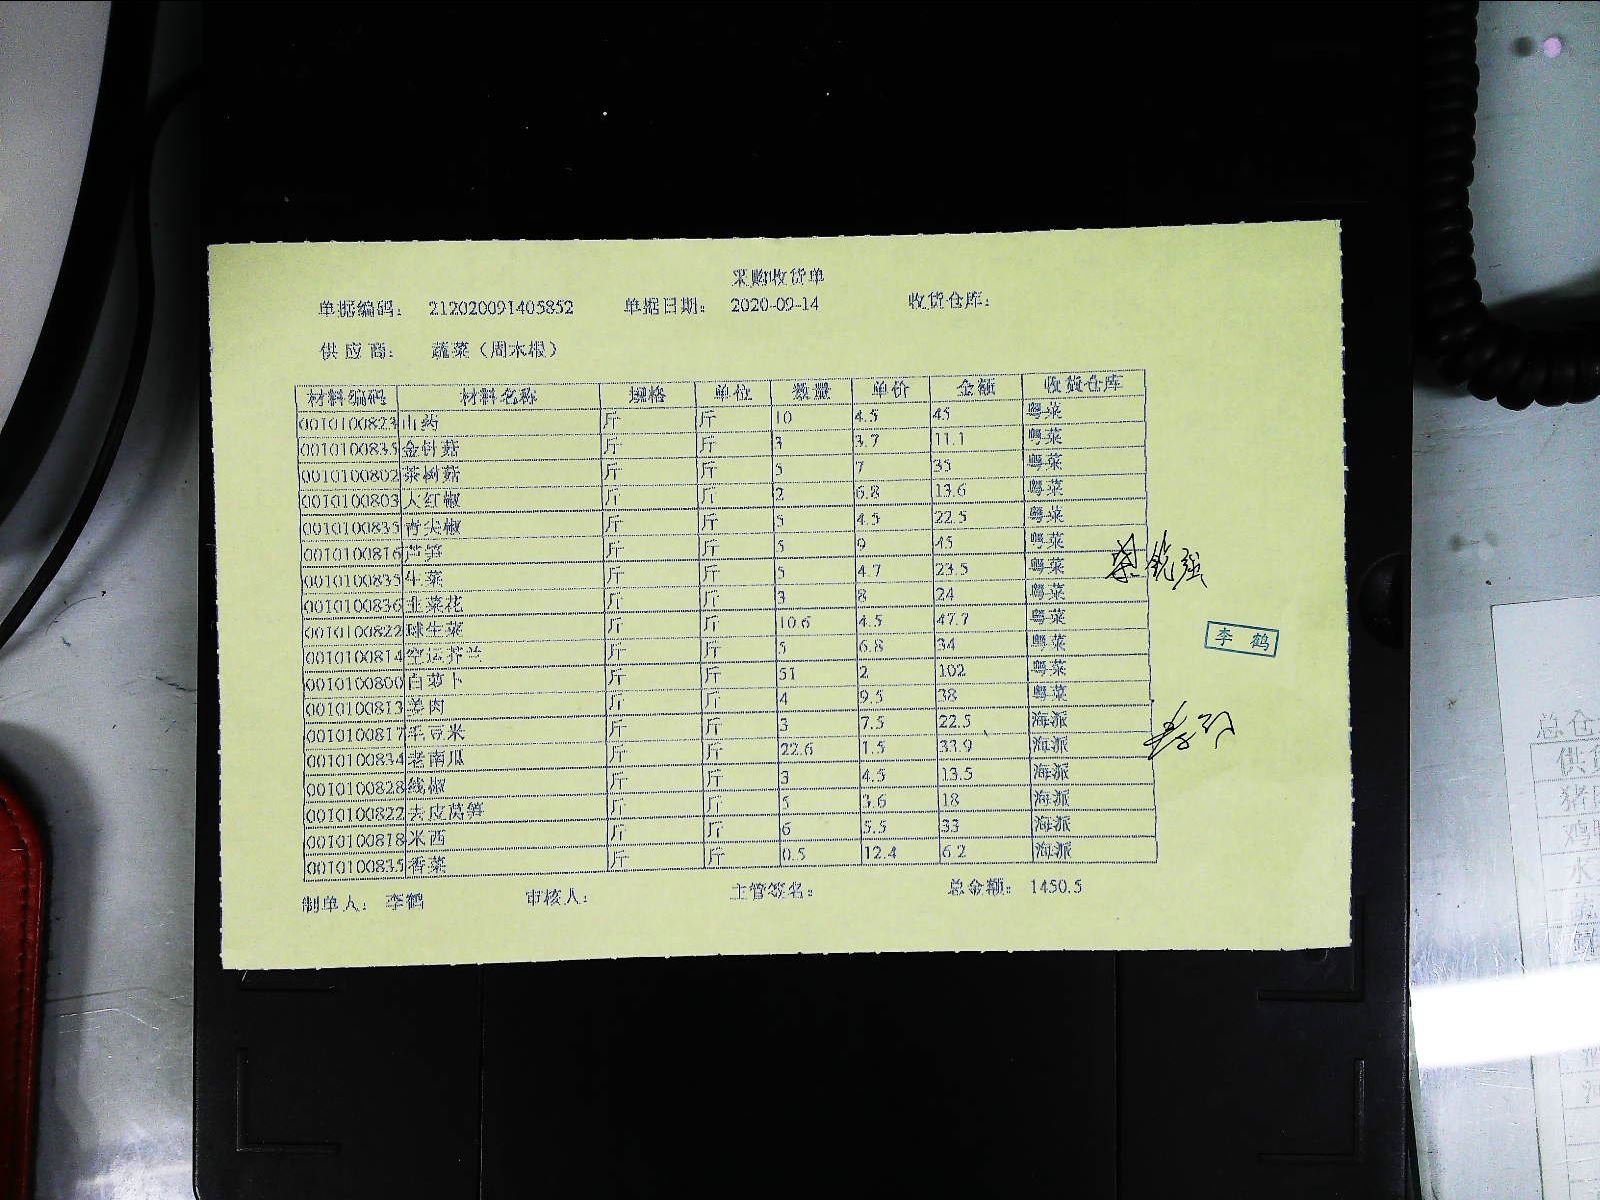 采购收货单
单据编码： 212020091405852 单据日期： 2020-09-14 收货仓库：
供应商： 蔬菜（周水根）
材料编码 材料名称 规格 单位 数量 单价 金额 收货仓库
0010100823 山药 斤 斤 10 4.5 45 粤菜
0010100835 金针菇 斤 斤 3 3.7 11.1 粤菜
0010100802 茶树菇 斤 斤 5 7 35 粤菜
0010100803 大红椒 斤 斤 2 6.8 13.6 粤菜
0010100835 青尖椒 斤 斤 5 4.5 22.5 粤菜
0010100816 芦笋 斤 斤 5 9 45 粤菜
0010100835 生菜 斤 斤 5 4.7 23.5 粤菜
0010100836 韭菜花 斤 斤 3 8 24 粤菜
0010100822 球生菜 斤 斤 10.6 4.5 47.7 粤菜
0010100814 空运芥兰 斤 斤 5 6.8 34 粤菜
0010100800 白萝卜 斤 斤 51 2 102 粤菜
0010100813 姜肉 斤 斤 4 9.5 38 粤菜
0010100817 毛豆米 斤 斤 3 7.5 22.5 海派
0010100834 老南瓜 斤 斤 22.6 1.5 33.9 海派
0010100828 线椒 斤 斤 3 4.5 13.5 海派
0010100822 去皮莴笋 斤 斤 5 3.6 18 海派
0010100818 米西 斤 斤 6 5.5 33 海派
0010100835 香菜 斤 斤 0.5 12.4 6.2 海派
李鹤
制单人： 李鹤 审核人： 主管签名： 总金额： 1450.5
总仓